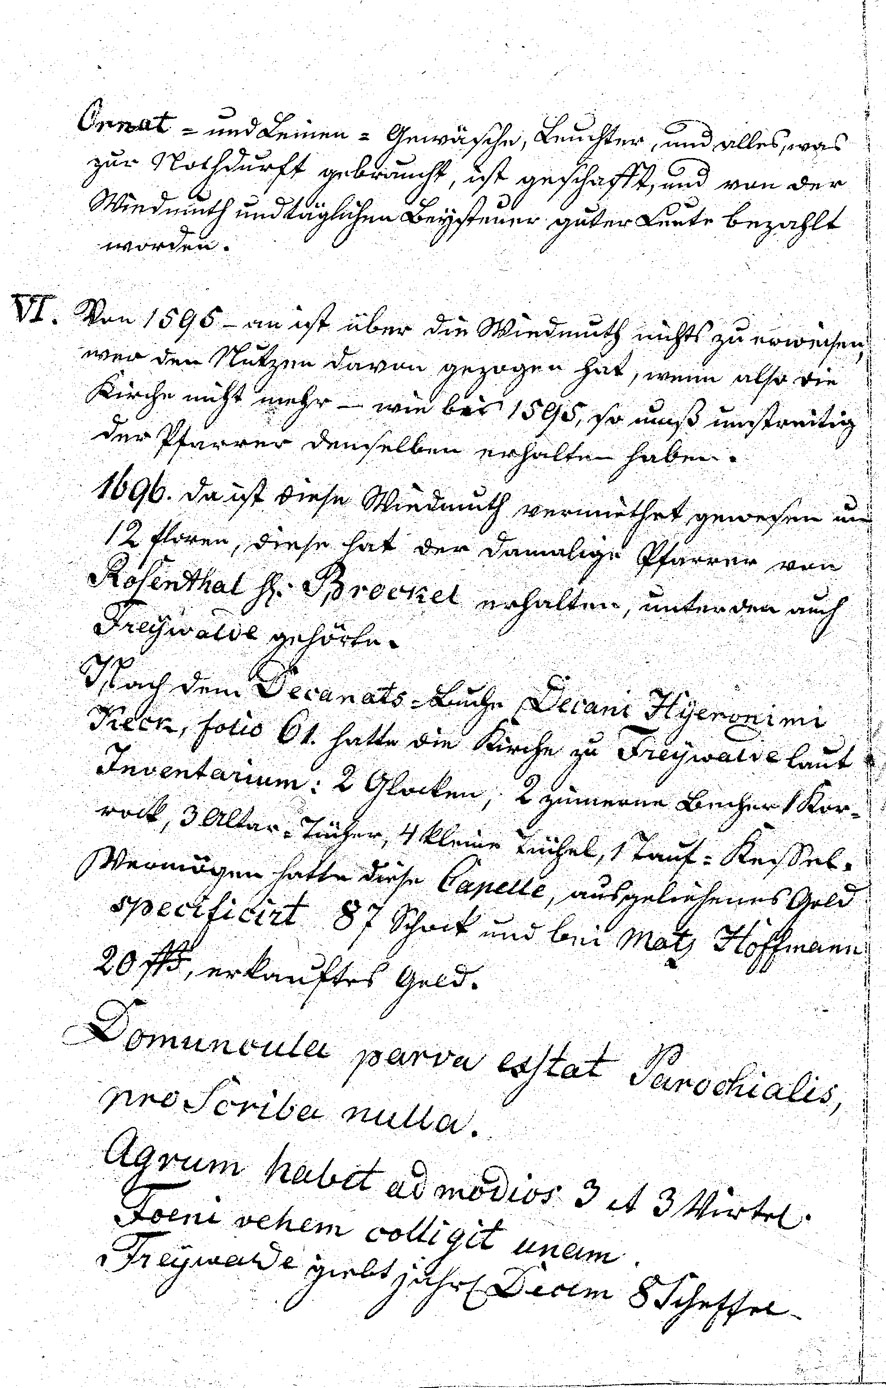 Ornat = und Leinen = Gewäsche, Leuchter, und alles, was
zur Nothdurft gebraucht, ist geschafft, und von der
Wiedmuth und täglichen Beysteuer guter Leute bezahlt
worden.
VI. Von 1595 – an ist über die Wiedmuth nichts zu erweisen,
wer den Nutzen davon gezogen hat, wenn also die
Kirche nicht mehr – wie bis 1595, so muß unstreitig
der Pfarrer denselben erhalten haben.
1696. da ist diese Wiedmuth vermiethet gewesen um
12 floren, diese hat der damalige Pfarrer von
Rosenthal H: Brockel erhalten, unter den auch
Freywalde gehörte.
Nach dem Decanats = Buche Decani Hyeronimi
Keck, folio 61. hatte die Kirche zu Freywalde laut
Inventarium: 2 Glocken, 2 zinnerne Becher 1 Kor=
rock, 3 Altar = Tücher, 4 kleine Tüchel, 1 Tauf = Kessel.
Vermögen hatte diese Capelle, ausgeliehenes Geld
specificirt 87 Schock und bei Matz Hoffmann
20 , erkauftes Geld.
Domuncula parva exstat Parochialis,
pro Scriba nulla.
Agrum habet ad modios 3 et 3 Virtel.
Foeni vehem colligit unam.
Freywalde giebt jährl Decem 8 Scheffel